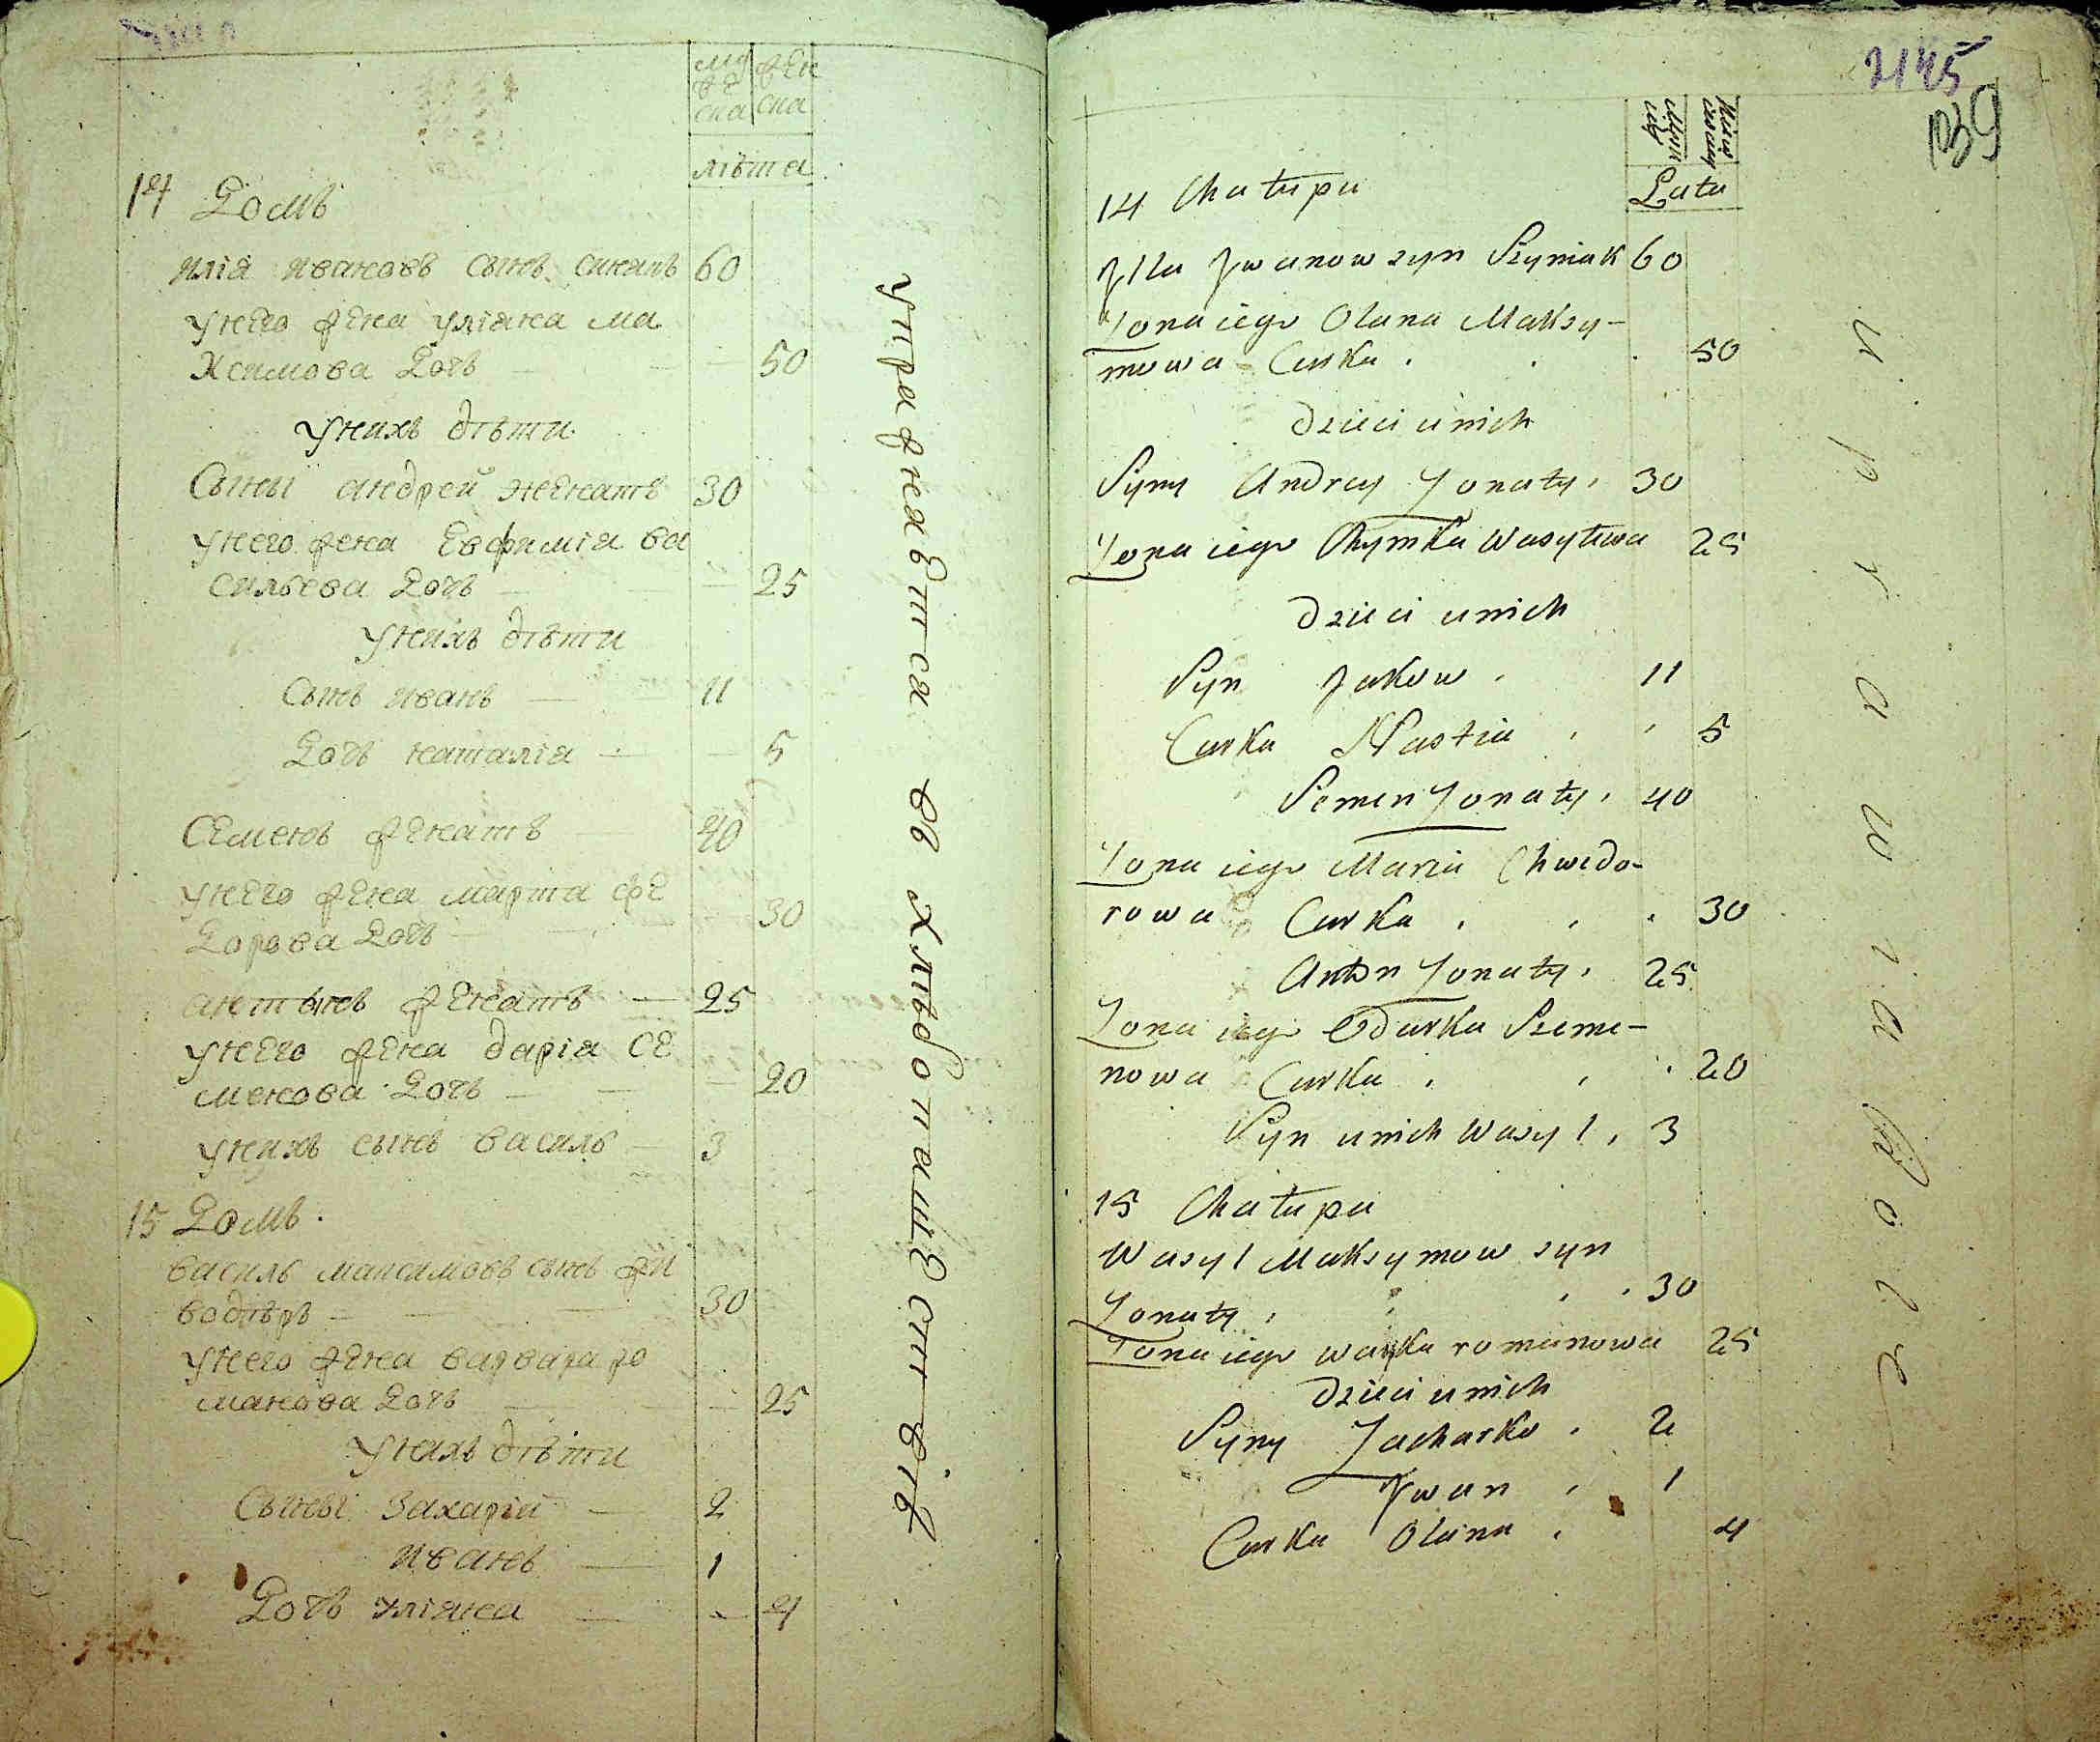 муже
ска
жен
ска
лѣта
14 Домъ
илїа ивановъ сынъ синякъ 60
унего жена улїяна ма
ксимова дочь 50
унихъ дѣти
Сыны андрей женатъ 30
унего жена Евфимїя ва
сильева дочь 25
унихъ дѣти
Сынъ иванъ 11
Дочь наталїя 5
Семенъ женатъ 40
унего жена марта фе
дорова дочь 30
антонъ женатъ 25
унего жена дарїя се
менова дочь 20
унихъ сынъ василь 3
15 Домъ.
василь максимовъ сынъ жи
водѣръ 30
унего жена варвара ро
манова дочь 25
унихъ дѣти
Сыны Захарїй 2
иванъ 1
Дочь улїяна 4
упражняются въ хлѣбопашествїѣ
2145
139
Lata
14 Chałupa
Jlla Jwanow syn Szyniak 60
Żona iego Olana Maksy-
mowa Curka 50
Dzieci u nich
Syny Andrey Żonaty 30
Żona iego Chymka Wasylowa 25
Dzieci u nich
Syn Jakow 11
Curka Nastia 5
Semen Żonaty 40
Żona iego Maria Chwedo-
rowa Curka 30
Anton Żonaty 25
Żona iego Odarka Szeme-
nowa Curka 20
Syn u nich Wasyl 3
15 Chałupa
Wasyl Maksymow syn
Żonaty 30
Żona iego Warka romanowa 25
Dzieci u nich
Syny Zacharko 2
Jwan 1
Curka Olana 4
uprawia Role